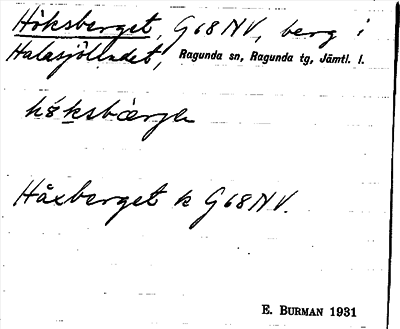 Höksberget, G 68 NV, berg i
Halasjölandet, Ragunda sn, Ragunda tg, Jämtl. l.
Håxberget k G 68 NV.
E. BURMAN 1931